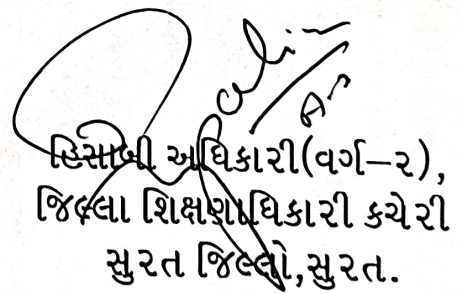 હિસાબી અધિકારી(વર્ગ–૨),
જિલ્લા શિક્ષણાધિકારી કચેરી
સુરત જિલ્લો,સુરત.